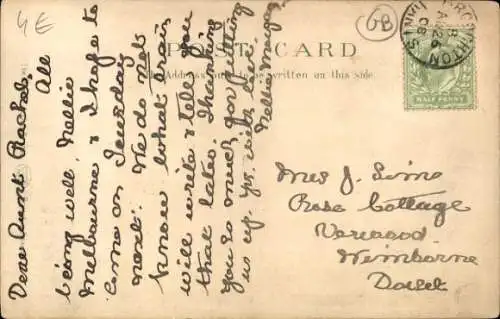 4E
GB
POST CARD
The Address only to be written on this side.
HALF PENNY
Dear Aunt Rachel,
All
being well. Nellie
Melbourne & I hope to
come on Tuesday
next. We do not
know what train
will write & tell you
that later. Thanking
you so much for putting
us up. Yrs. with love
Nellie
Mrs J. Sims
Rose Cottage
Verwood
Wimborne
Dorset